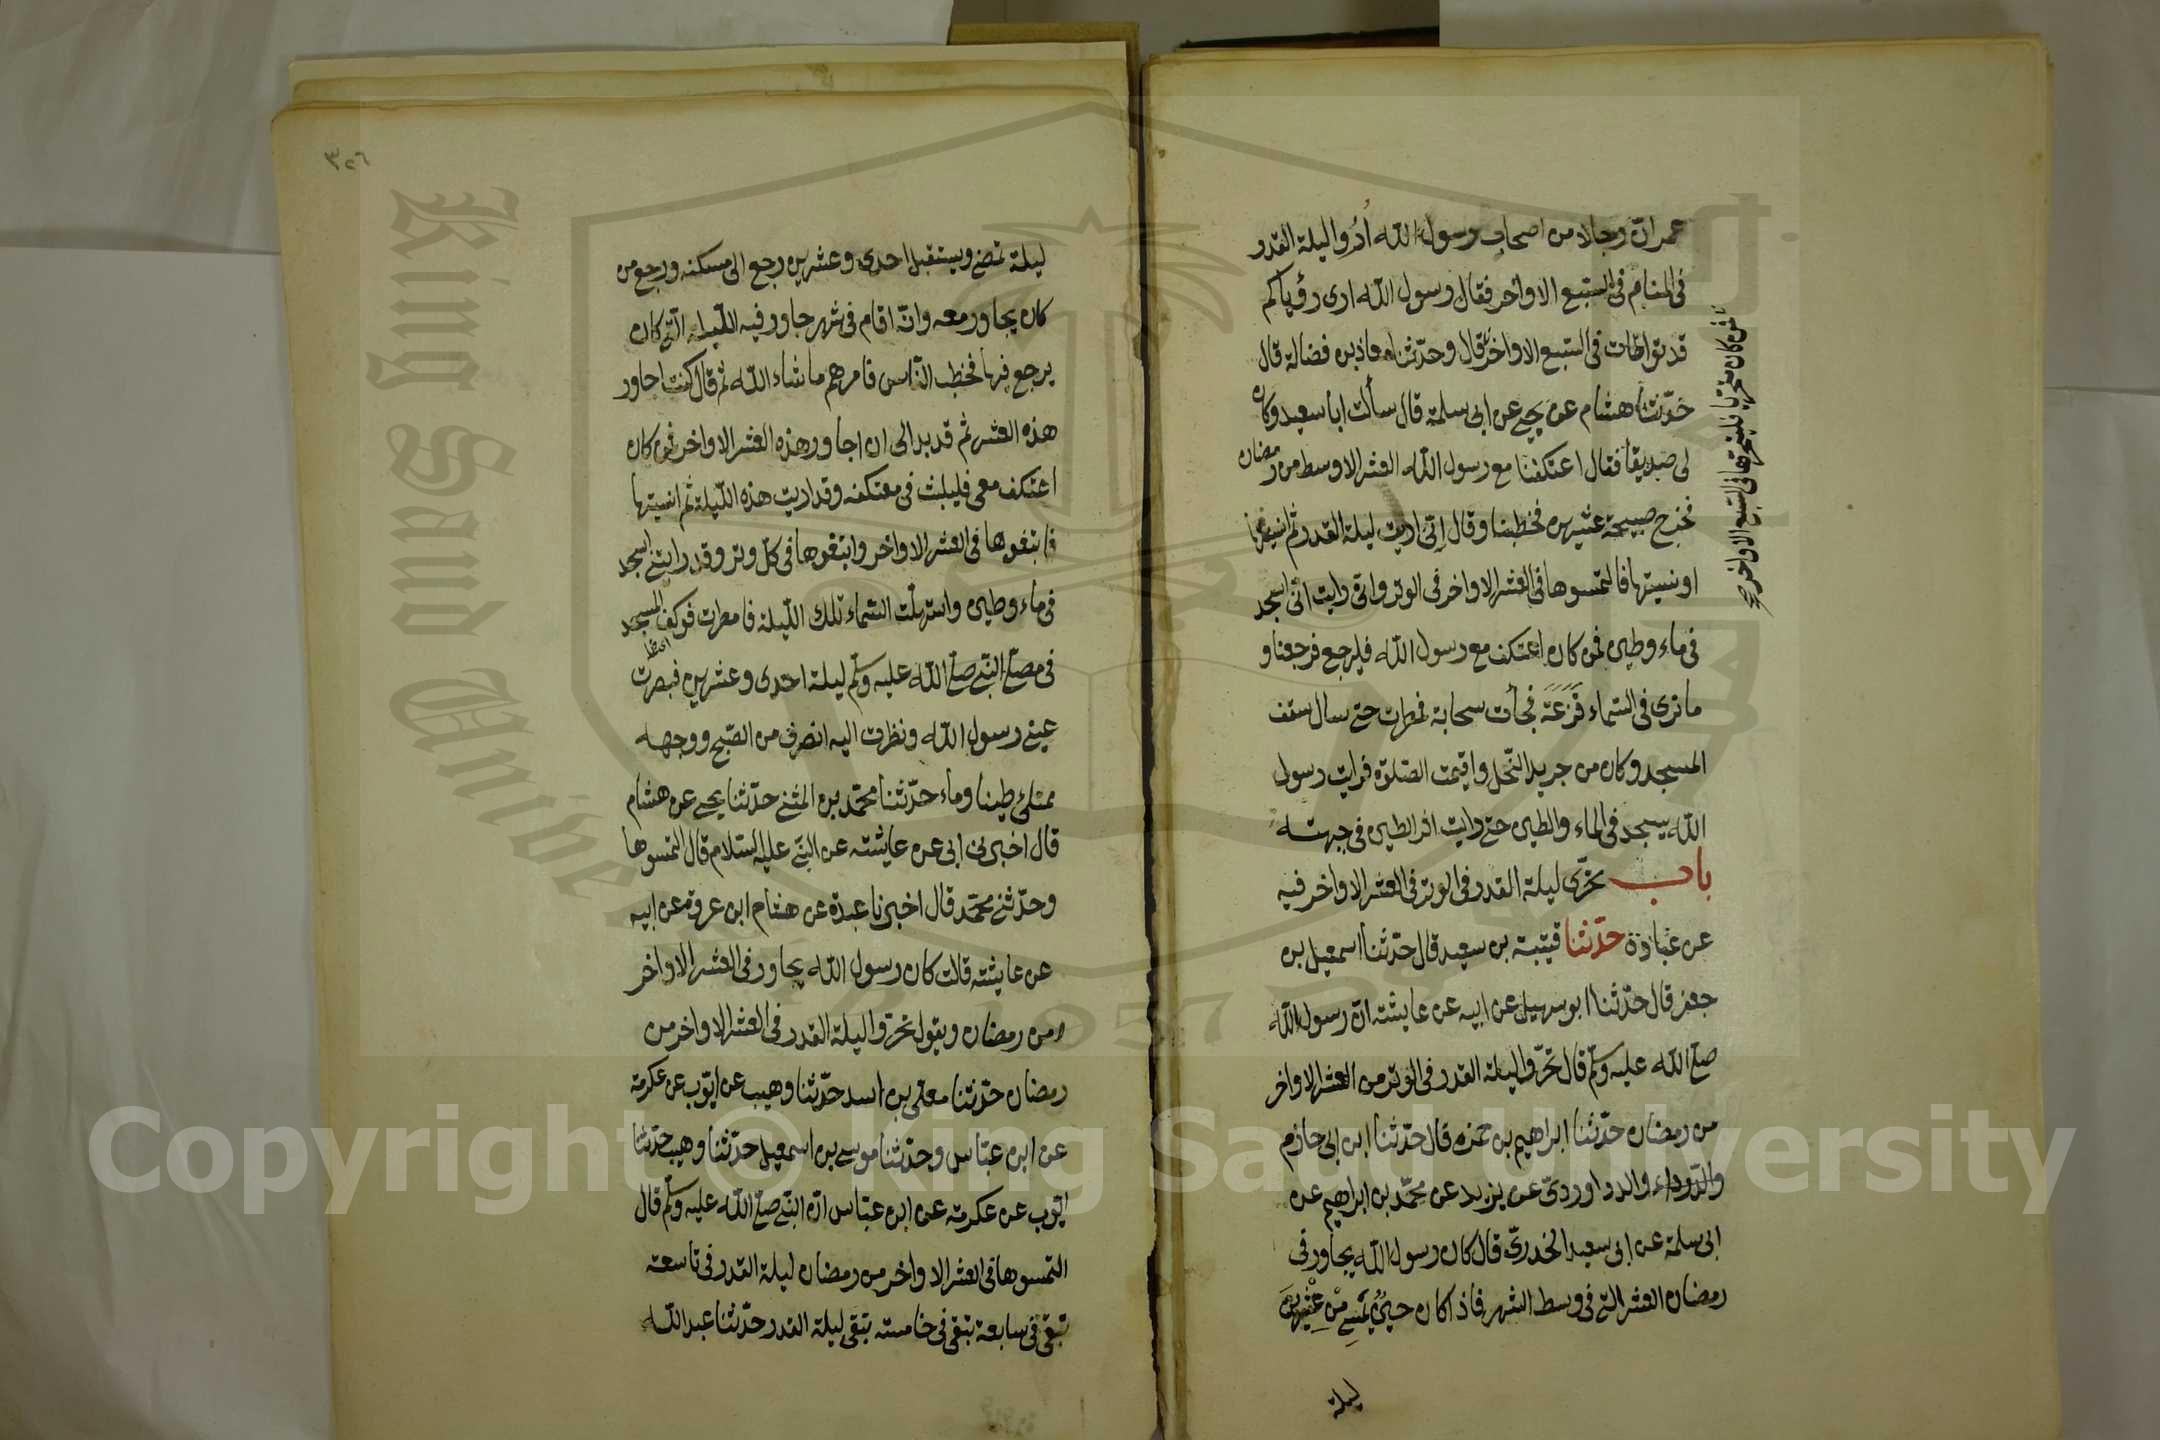 عمر انّ رجالا من اصحاب رسول الله اُرُوا ليلة القدر
فى المنام فى السّبع الاواخر فقال رسول الله ارى رؤياكم
قد تواطات فى السّبع الاواخر قال وحدّثنا معاذ بن فضالة قال
حدّثنا هشام عن يحيى عن ابى سلمة قال سألت ابا سعيد وكان
لى صديقا فقال اعتكفنا مع رسول الله العشر الاوسط من رمضان
فخرج صبيحة عشرين فخطبنا وقال اِنّى اريت ليلة القدر ثم انسيتها
او نسيتها فالتمسوها فى العشر الاواخر فى الوتر وانى رايت انّى اسجد
فى ماء وطين فمن كان اعتكف مع رسول الله فليرجع فرجعنا و
ما نرى فى السّماء قَزَعَة فجأت سحابة فمطرت حتى سال سقف
المسجد وكان من جريد النّخل واقيمت الصّلوة فرايت رسول
الله يسجد فى الماء والطين حتى رايت اثر الطين فى جبهته
باب تحرّى ليلة القدر فى الوتر فى العشر الاواخر فيه
عن عبادة حدّثنا قتيبة بن سعيد قال حدّثنا اسمعيل بن
جعفر قال حدّثنا ابو سهيل عن ابيه عن عايشة انّ رسول الله
صلّى الله عليه وسلّم قال تحرّوا ليلة القدر فى الوتر من العشر الاواخر
من رمضان حدّثنا ابراهيم بن حمزه قال حدّثنا ابن ابى حازم
والدراوردىّ عن يزيد عن محمّد بن ابراهيم عن
ابى سلمة عن ابى سعيد الخدرىّ قال كان رسول الله يجاور فى
رمضان العشر التى فى وسط الشهر فاذا كان حين يمسى من عشرين
ليلة
فمن كان متحرّيا فليتحرّها فى السّبع الاواخر صح
٣٢٦
ليلة تمضى ويستقبل احدى وعشرين رجع الى مسكنه ورجع من
كان يجاور معه وانّه اقام فى شهر جاور فيه اللّيلة الّتى كان
يرجع فيها فخطب النّاس فامرهم ما شاء الله ثم قال كنت اجاور
هذه العشر ثم قد بدا لى ان اجاور هذه العشر الاواخر فمن كان
اعتكف معى فليلبث فى معتكفه وقد اريت هذه اللّيلة ثم انسيتها
فابتغوها فى العشر الاواخر وابتغوها فى كلّ وتر وقد رايتنى اسجد
فى ماء وطين واستهلّت السّماء تلك اللّيلة فامطرت فوكف المسجد
فى مصلّى النبّى صلّى الله عليه وسلّم ليلة احدى وعشرين فبصرت
عينى رسول الله ونظرت اليه انصرف من الصّبح ووجهه
ممتلئ طينا وماء حدّثنا محمّد بن المثنى حدّثنا يحيى عن هشام
قال اخبرنى ابى عن عايشة عن النبّى عليه السّلام قال التمسوها
وحدّثنى محمّد قال اخبرنا عبدة عن هشام ابن عروة عن ابيه
عن عايشة قالت كان رسول الله يجاور فى العشر الاواخر
من رمضان ويقول تحرّوا ليلة القدر فى العشر الاواخر من
رمضان حدّثنا معلّى بن اسد حدّثنا وهيب عن ايّوب عن عكرمة
عن ابن عبّاس وحدّثنا موسى بن اسمعيل حدّثنا وهيب حدّثنا
ايّوب عن عكرمة عن ابن عبّاس انّ النبّى صلّى الله عليه وسلّم قال
التمسوها فى العشر الاواخر من رمضان ليلة القدر فى تاسعة
تبقى فى سابعة تبقى فى خامسة تبقى ليلة القدر حدّثنا عبد الله
King Saud University
1957
Copyright © King Saud University